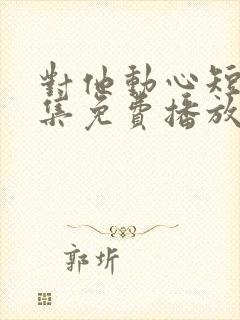 對他動心短
集免費播放
郭圻